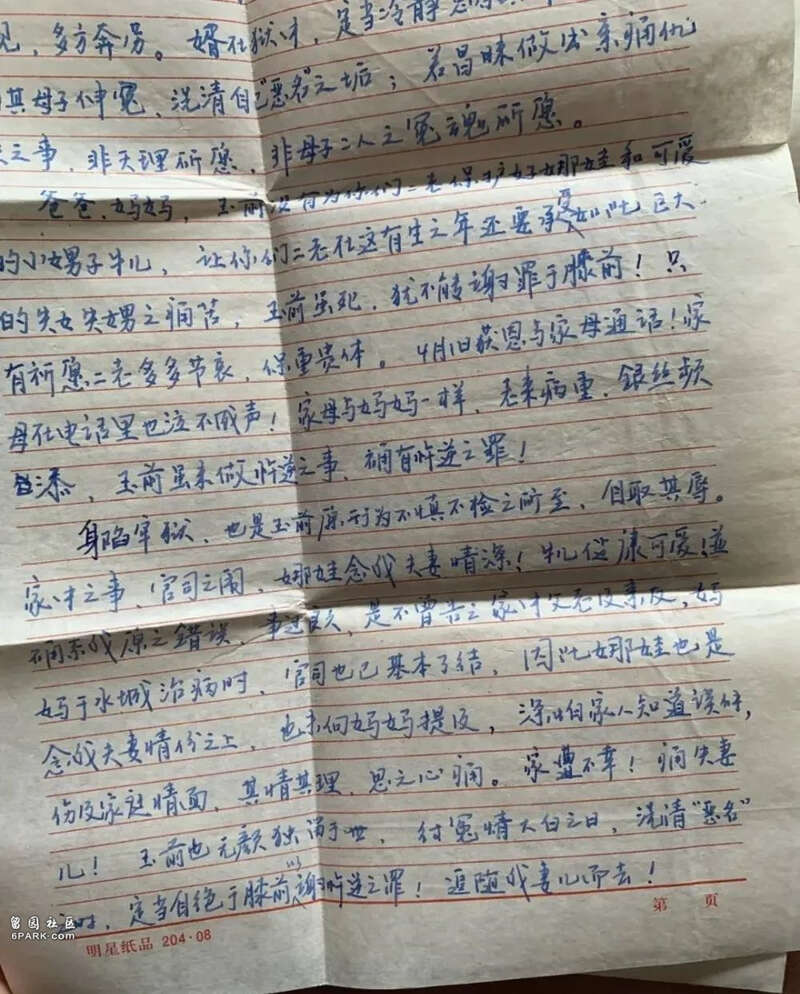 见，多方奔劳。婿在狱中，定当冷静
其母子伸冤，洗清自己"恶名"之垢；若冒昧做出亲痛仇
之事，非天理所愿，非母子二人之冤魂所愿。
爸爸、妈妈，玉前没有为你们二老保护好娜娃和可爱
的小甥子牛儿，让你们二老在这有生之年还要承受如此巨大
的失女失甥之痛苦，玉前虽死，犹不能谢罪于膝前！只
有祈愿二老多多节哀，保重贵体。4月1日获恩与家母通话！家
母在电话里也泣不成声！家母与妈妈一样，老来病重，银丝频
添，玉前虽未做忤逆之事，确有忤逆之罪！
身陷牢狱，也是玉前原行为不慎不检之所至，自取其辱。
家中之事，官司之闹，娜娃念我夫妻情深！牛儿健康可爱！并
确系我原之错误，事过良久，是不曾告之家中父老及亲友，妈
妈于水城治病时，官司也已基本了结，因此娜娃也是
念我夫妻情份之上，也未向妈妈提及，深怕家人知道误解，
伤及家庭情面，其情其理，思之心痛。家遭不幸！痛失妻
儿！玉前也无颜独活于世，待冤情大白之日，洗清"恶名"
之时，定当自绝于膝前以谢忤逆之罪！追随我妻儿而去！
第 页
明星纸品 204·08
留园社区
6PARK.com